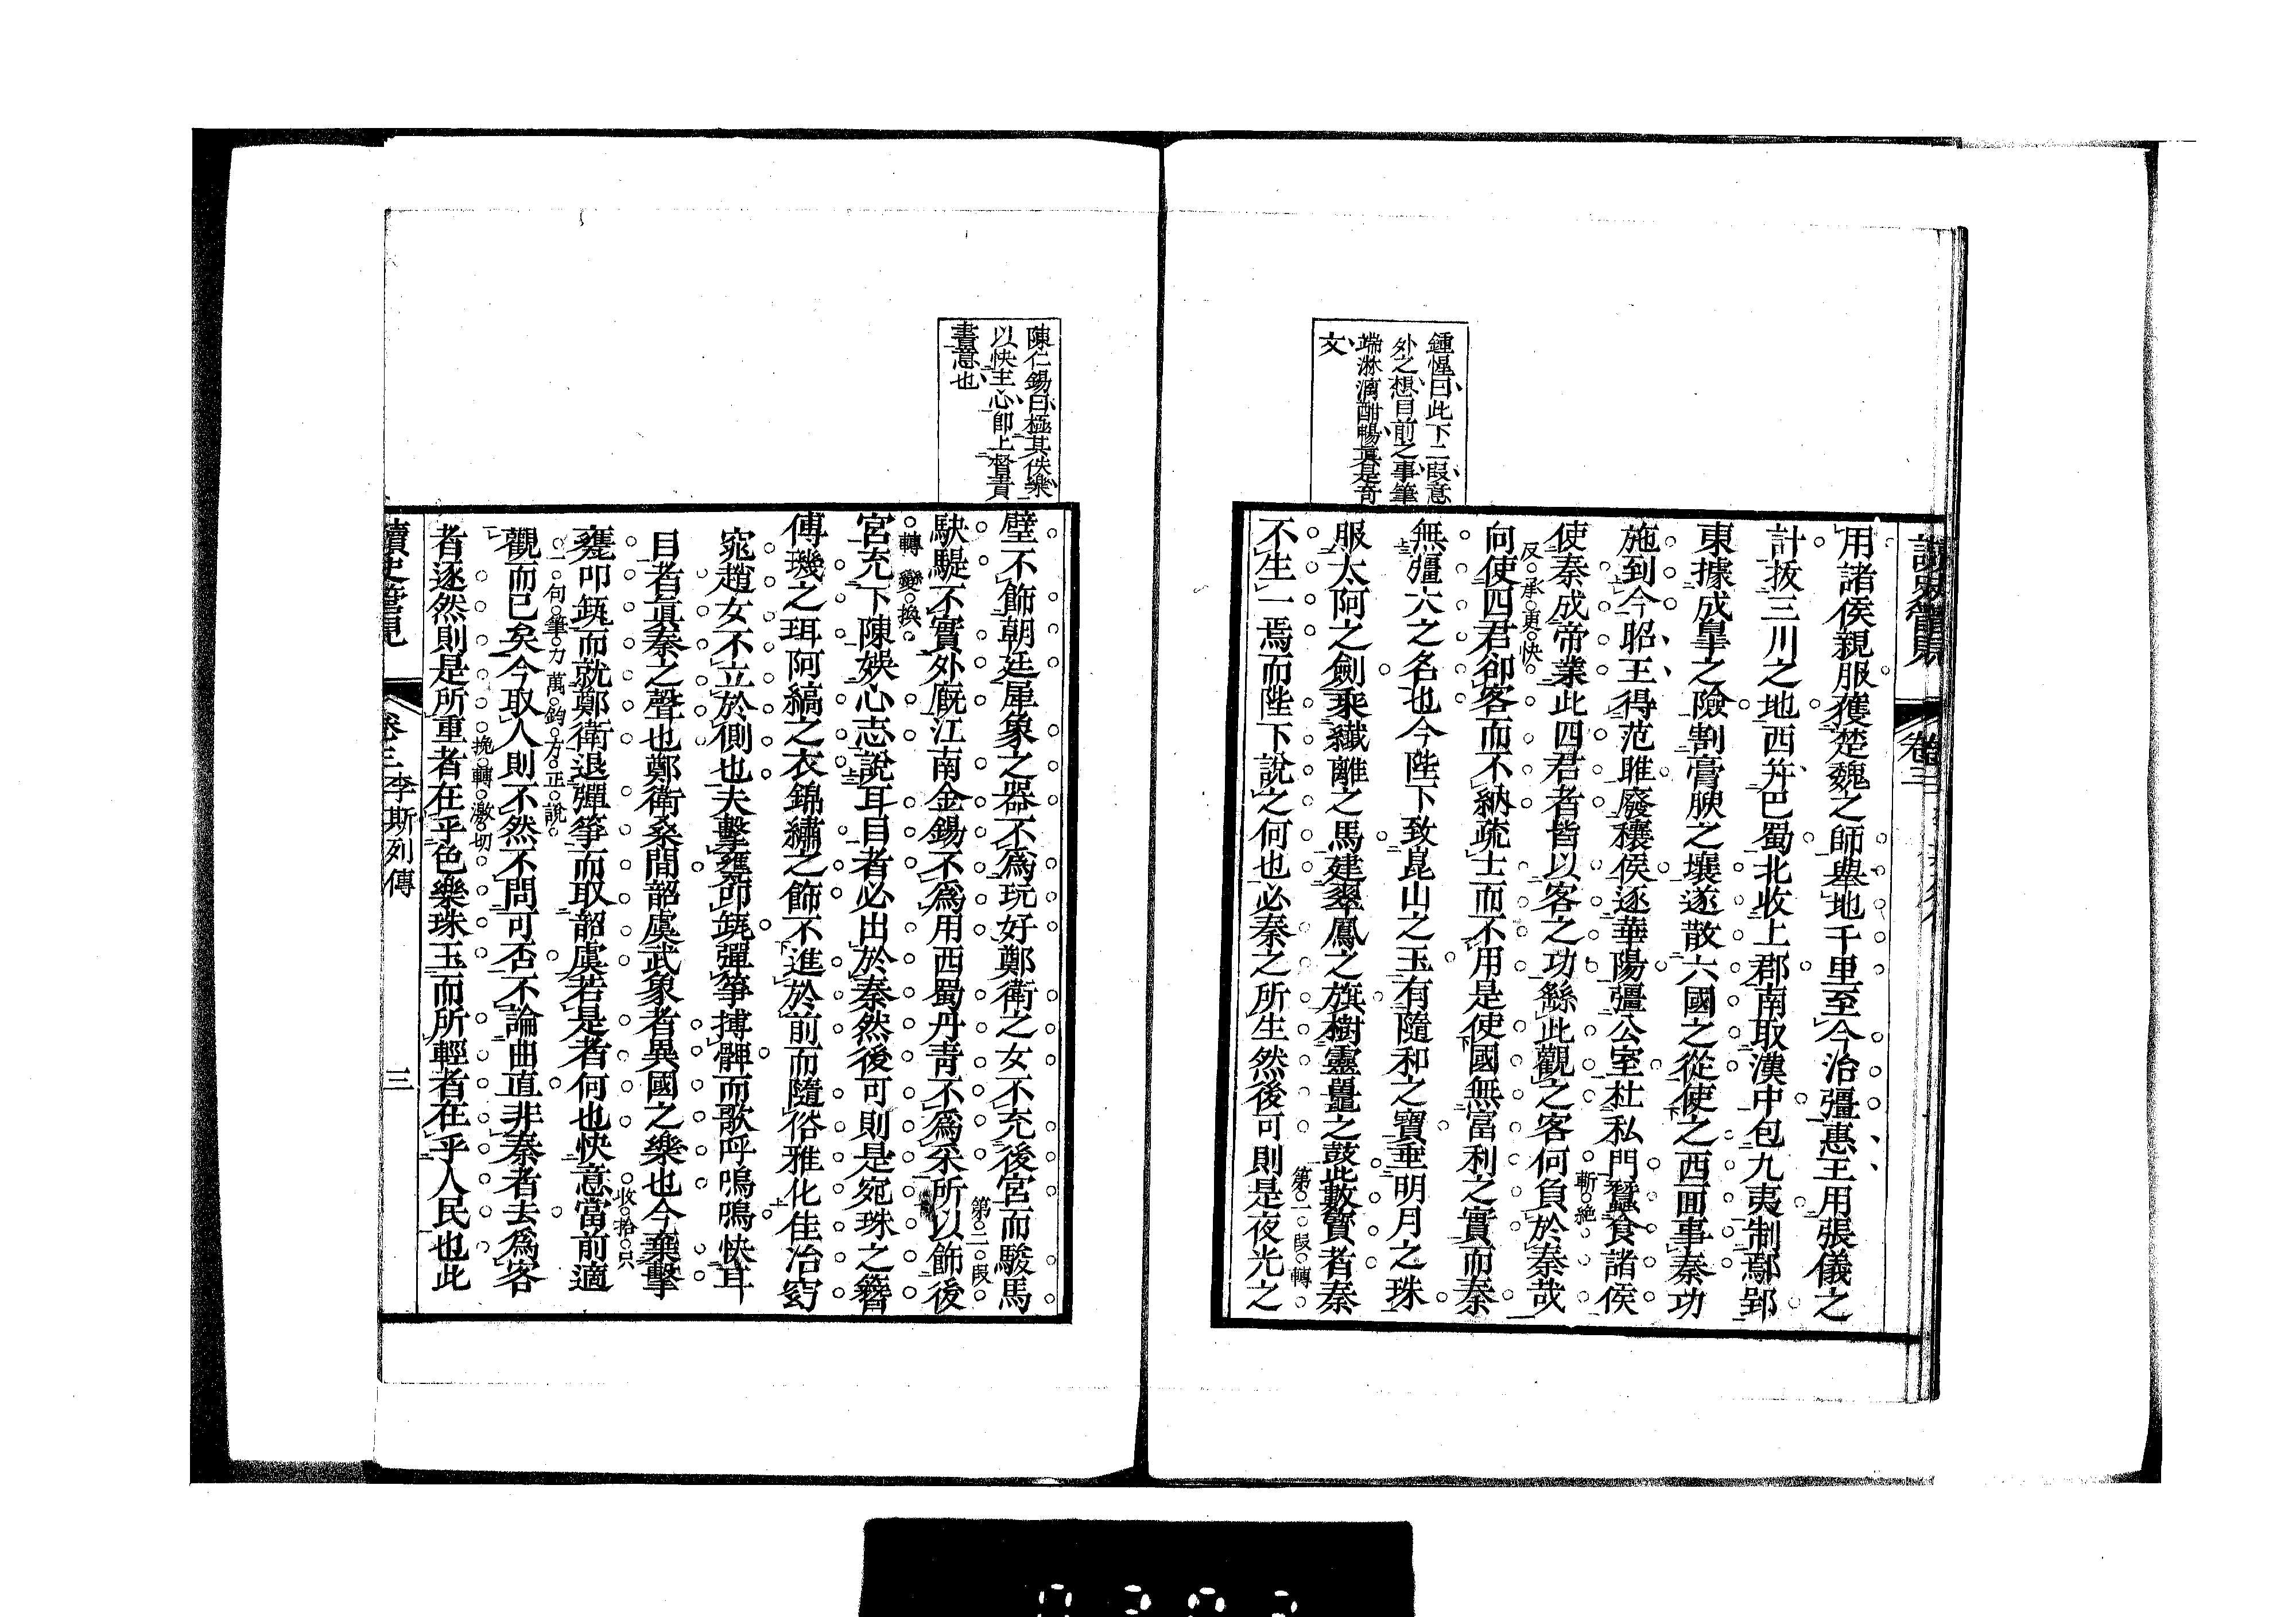 鍾惺曰此下二段意
外之想目前之事筆
端淋漓酣暢眞是奇
文
用諸侯親服獲楚魏之師舉地千里至今治彊惠王用張儀之
計拔三川之地西幷巴蜀北收上郡南取漢中包九夷制鄢郢
東據成皐之險割膏腴之壤遂散六國之從使之西面事秦功
施到今昭王得范雎廢穰侯逐華陽彊公室杜私門蠶食諸侯
斬絶
使秦成帝業此四君者皆以客之功繇此觀之客何負於秦哉
反承更快
向使四君卻客而不納疏士而不用是使國無富利之實而秦
無彊大之名也今陛下致崑山之玉有隨和之寶垂明月之珠
服太阿之劍乘纖離之馬建翠鳳之旗樹靈鼉之鼓此數寶者秦
第一段轉
不生一焉而陛下說之何也必秦之所生然後可則是夜光之
陳仁錫曰極其佚樂
以快主心卽上督責
書意也
璧不飾朝廷犀象之器不爲玩好鄭衛之女不充後宮而駿馬
第二段
駃騠不實外廐江南金錫不爲用西蜀丹靑不爲采所以飾後
轉變換
宮充下陳娛心志說耳目者必出於秦然後可則是宛珠之簪
傅璣之珥阿縞之衣錦繡之飾不進於前而隨俗雅化佳冶窈
窕趙女不立於側也夫擊甕叩缻彈箏搏髀而歌呼嗚嗚快耳
目者眞秦之聲也鄭衛桑間韶虞武象者異國之樂也今棄擊
收拾只
甕叩缻而就鄭衛退彈箏而取韶虞若是者何也快意當前適
一句筆力萬鈞方正說
觀而已矣今取人則不然不問可否不論曲直非秦者去爲客
挽轉激切
者逐然則是所重者在乎色樂珠玉而所輕者在乎人民也此
讀史管見
卷三 李斯列傳
三